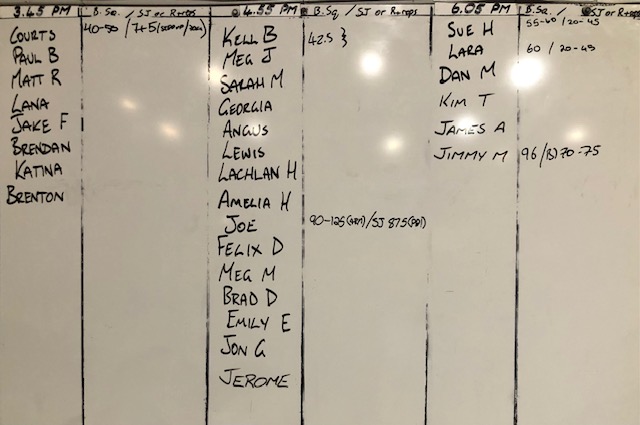 3.45 PM B. Sq. / SJ or R+reps
COURTS 40-50
PAUL B
MATT R
LANA
JAKE F
BRENDAN
KATINA
BRENTON
4.55 PM B. Sq. / SJ or R+reps
KELL B 42.5 }
MEG J
SARAH M
GEORGIA
ANGUS
LEWIS
LACHLAN H
AMELIA H
JOE 90-125
FELIX D
MEG M
BRAD D
EMILY E
JON G
JEROME
6.05 PM B. Sq. / SJ or R+reps
SUE H 55-60 / 20-45
LARA 60 / 20-45
DAN M
KIM T
JAMES A
JIMMY M 96 /(B) 70-75